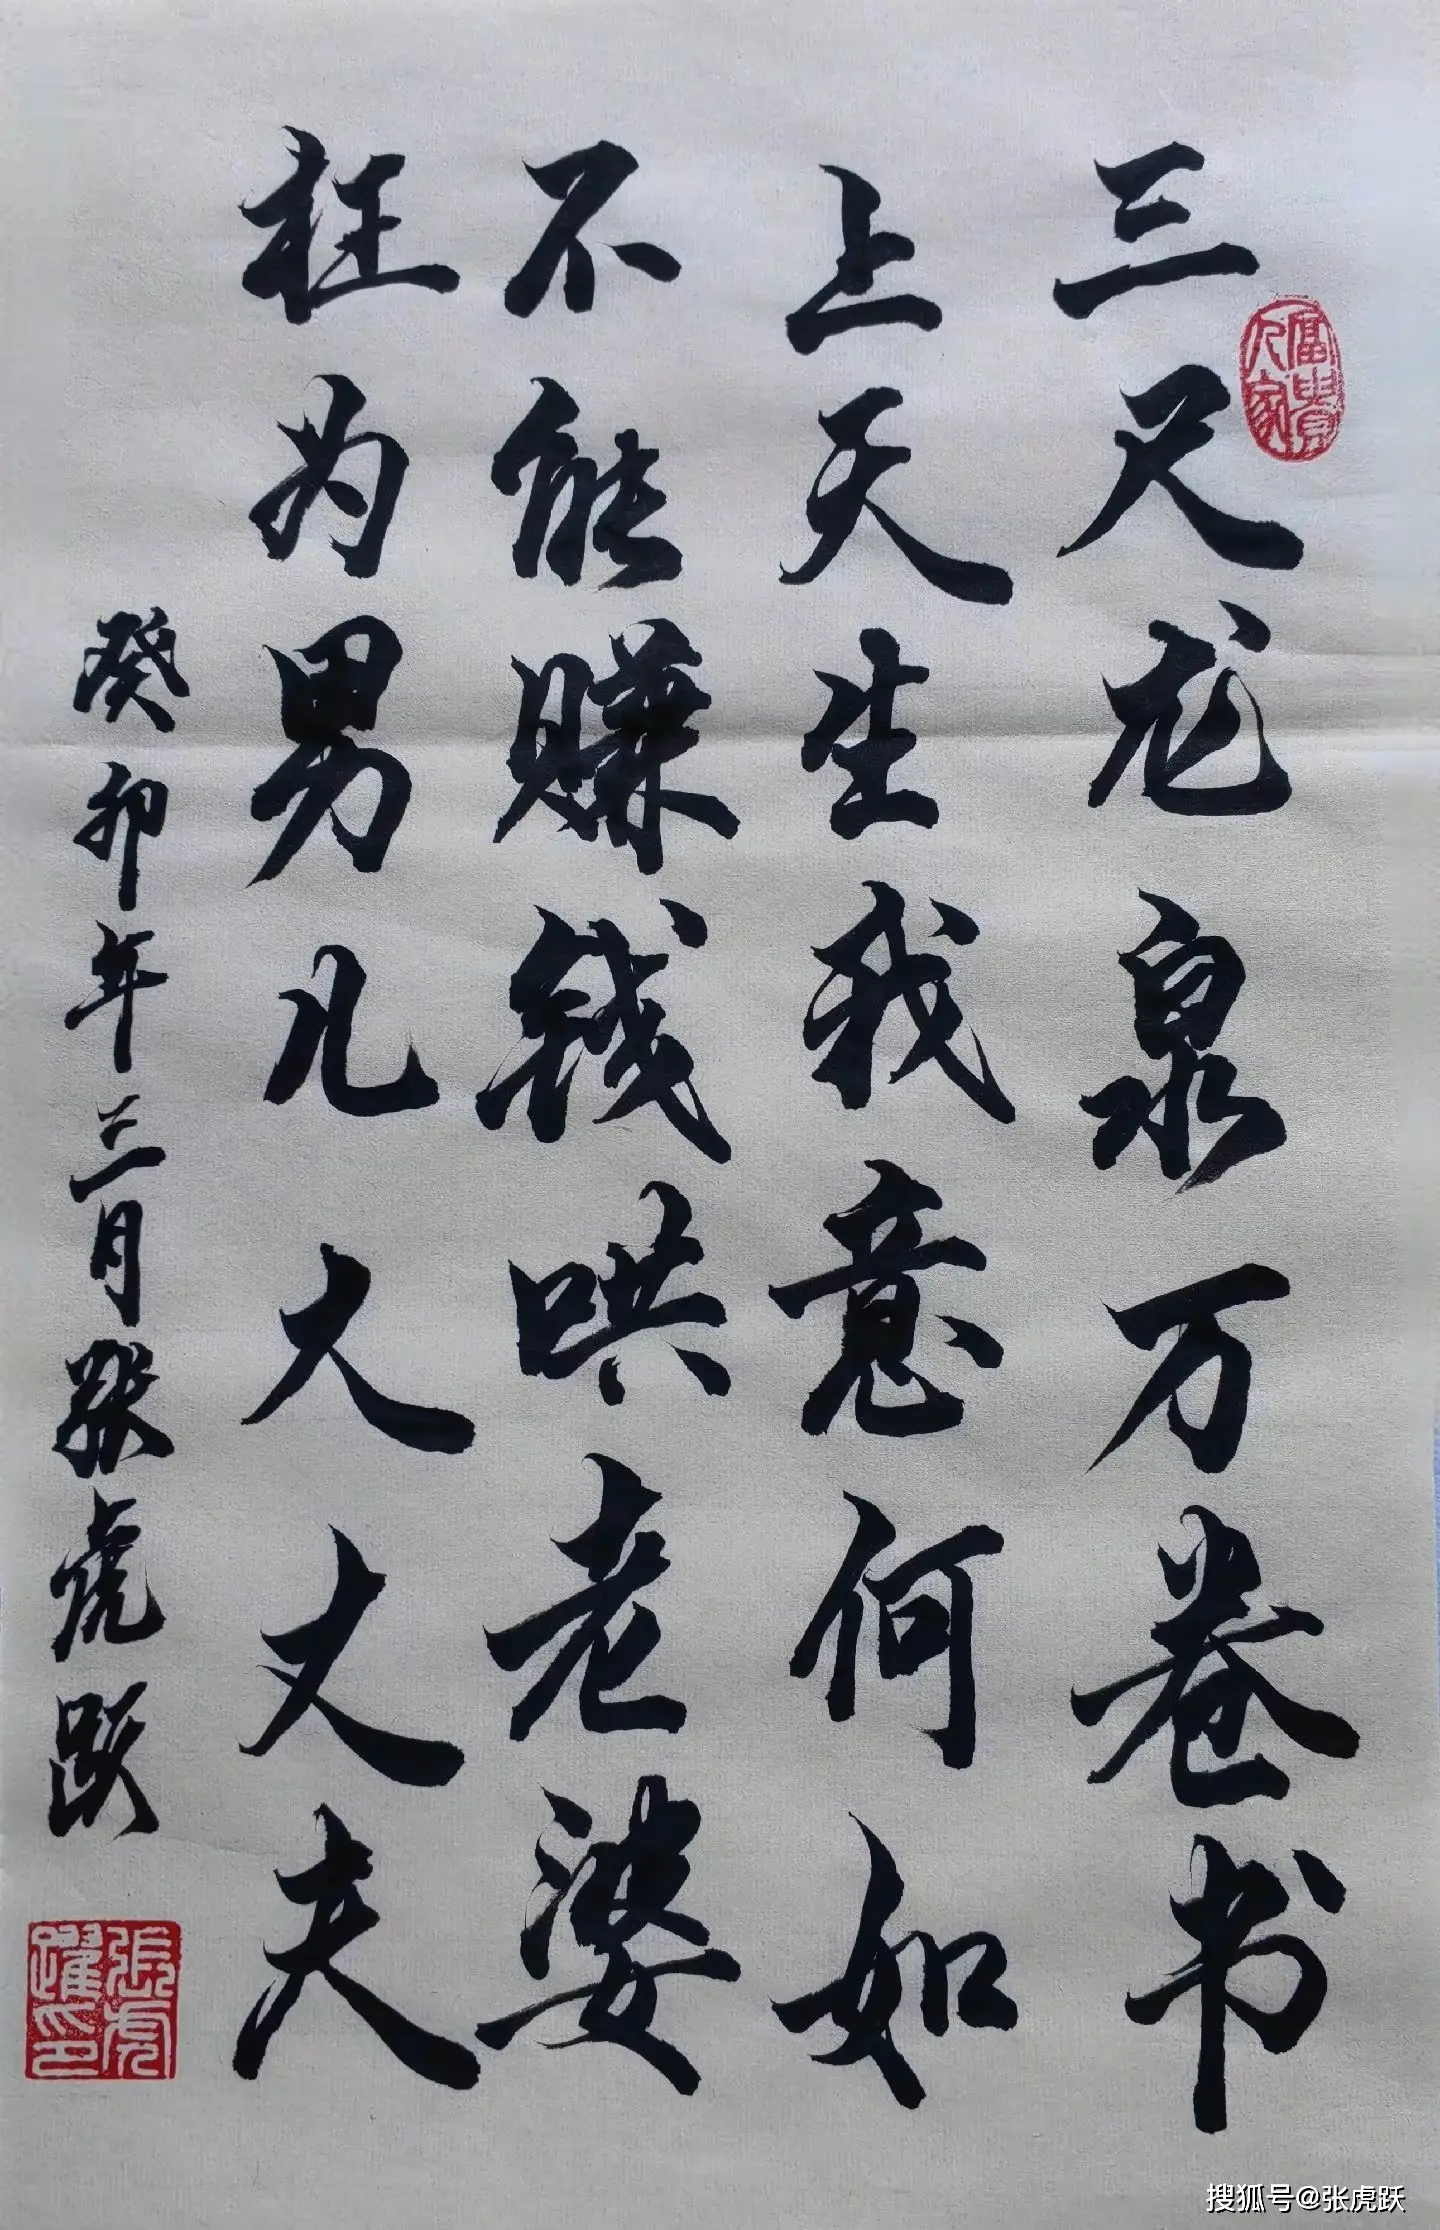 三尺龙泉万卷书
上天生我意何如
不能赚钱哄老婆
枉为男儿大丈夫
癸卯年三月张虎跃
富贵人家
张虎跃印
搜狐号@张虎跃